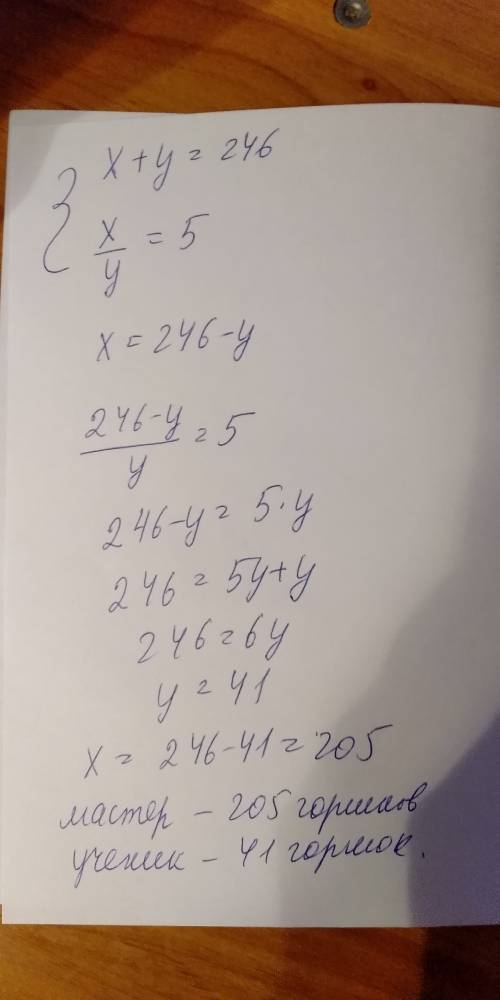 x+y=246
x/y=5
x=246-y
246-y/y=5
246-y=5·y
246=5y+y
246=6y
y=41
x=246-41=205
мастер – 205 горшков
ученик – 41 горшок.